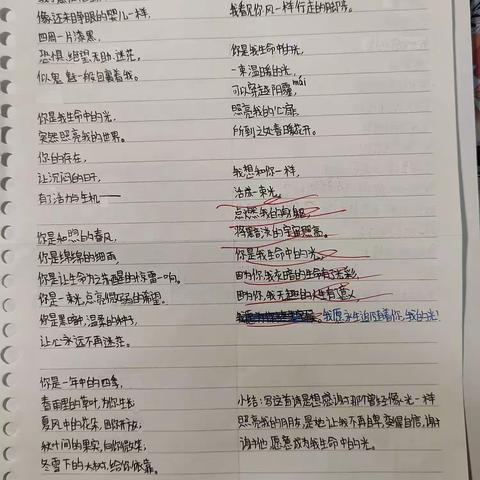 像还未睁眼的婴儿一样,
四周一片漆黑,
恐惧、绝望、无助、迷茫,
似鬼魅一般包裹着我。
你是我生命中的光,
突然照亮我的世界。
你的存在,
让沉闷的日子,
有了活力与生机——
你是和煦的春风,
你是绵绵的细雨,
你是让生命为之苏醒的惊雷一响。
你是一束光,点亮微弱的希望。
你是黑暗中,温柔的种子,
让心永远不再迷茫。
你是一年中的四季,
春雨里的草叶,为你生长
夏风中的花朵,因你开放,
秋叶间的果实,向你微笑,
冬雪下的大树,给你依靠。
我看见你风一样行走的脚步。
你是我生命中的光,
一束温暖的光,
可以穿越阴霾,
mái
照亮我的心扉,
所到之处春暖花开。
我想和你一样,
活成一束光,
点燃我的身躯,
将黯淡的宇宙照亮。
你是我生命中的光。
因为你,我灰暗的生命有了光彩,
因为你,我无趣的人生有意义
我愿永生追随着你,我的光!
小结:写这首诗是想感谢那个曾经像光一样
照亮我的朋友,是她让我不再自卑,变得自信,谢谢
谢谢她愿意成为我生命中的光。